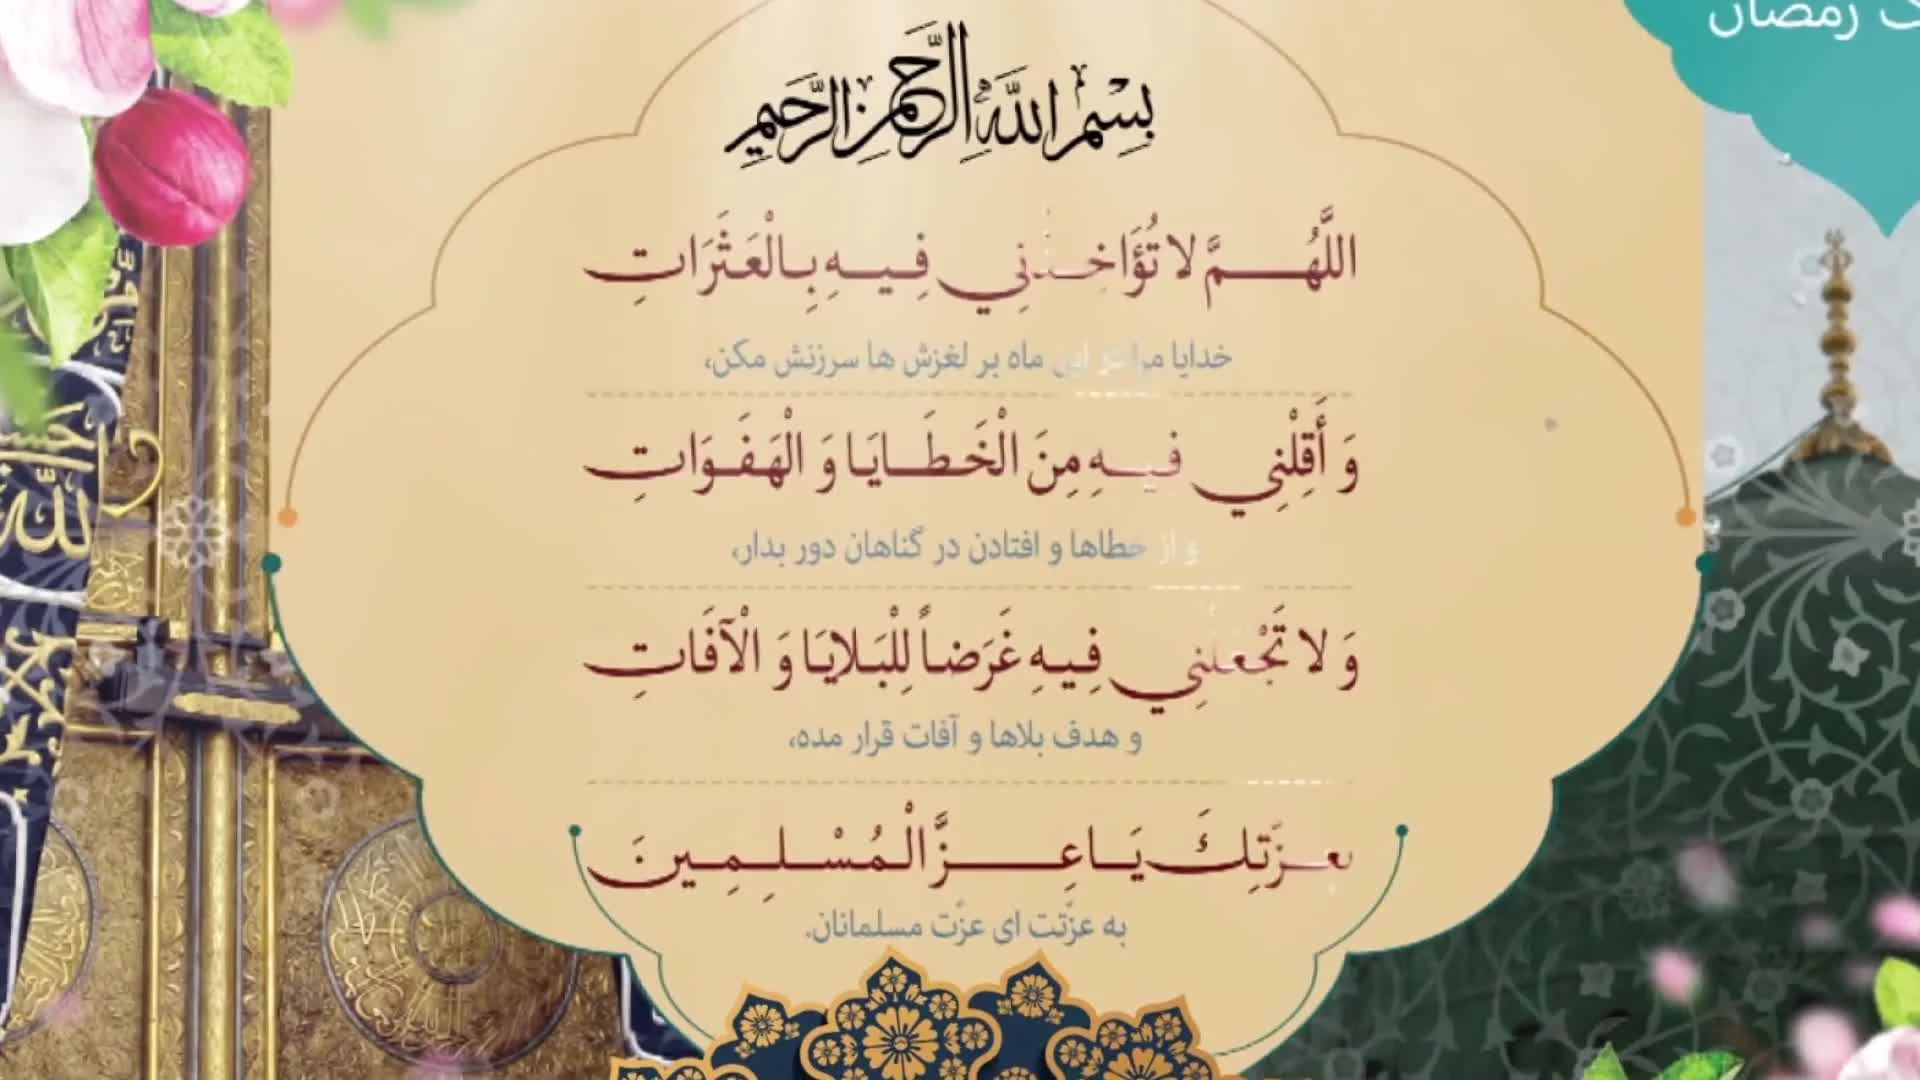 ک رمضان
بِسْمِ اللَّهِ الرَّحْمَٰنِ الرَّحِيمِ
اللَّهُمَّ لا تُؤَاخِذْنِي فِيهِ بِالْعَثَرَاتِ
خدایا مرا در این ماه بر لغزش ها سرزنش مکن،
وَ أَقِلْنِي فِيهِ مِنَ الْخَطَايَا وَ الْهَفَوَاتِ
و از خطاها و افتادن در گناهان دور بدار،
وَ لا تَجْعَلْنِي فِيهِ غَرَضاً لِلْبَلايَا وَ الْآفَاتِ
و هدف بلاها و آفات قرار مده،
بِعِزَّتِكَ يَا عِزَّ الْمُسْلِمِينَ
به عزّتت ای عزّت مسلمانان.